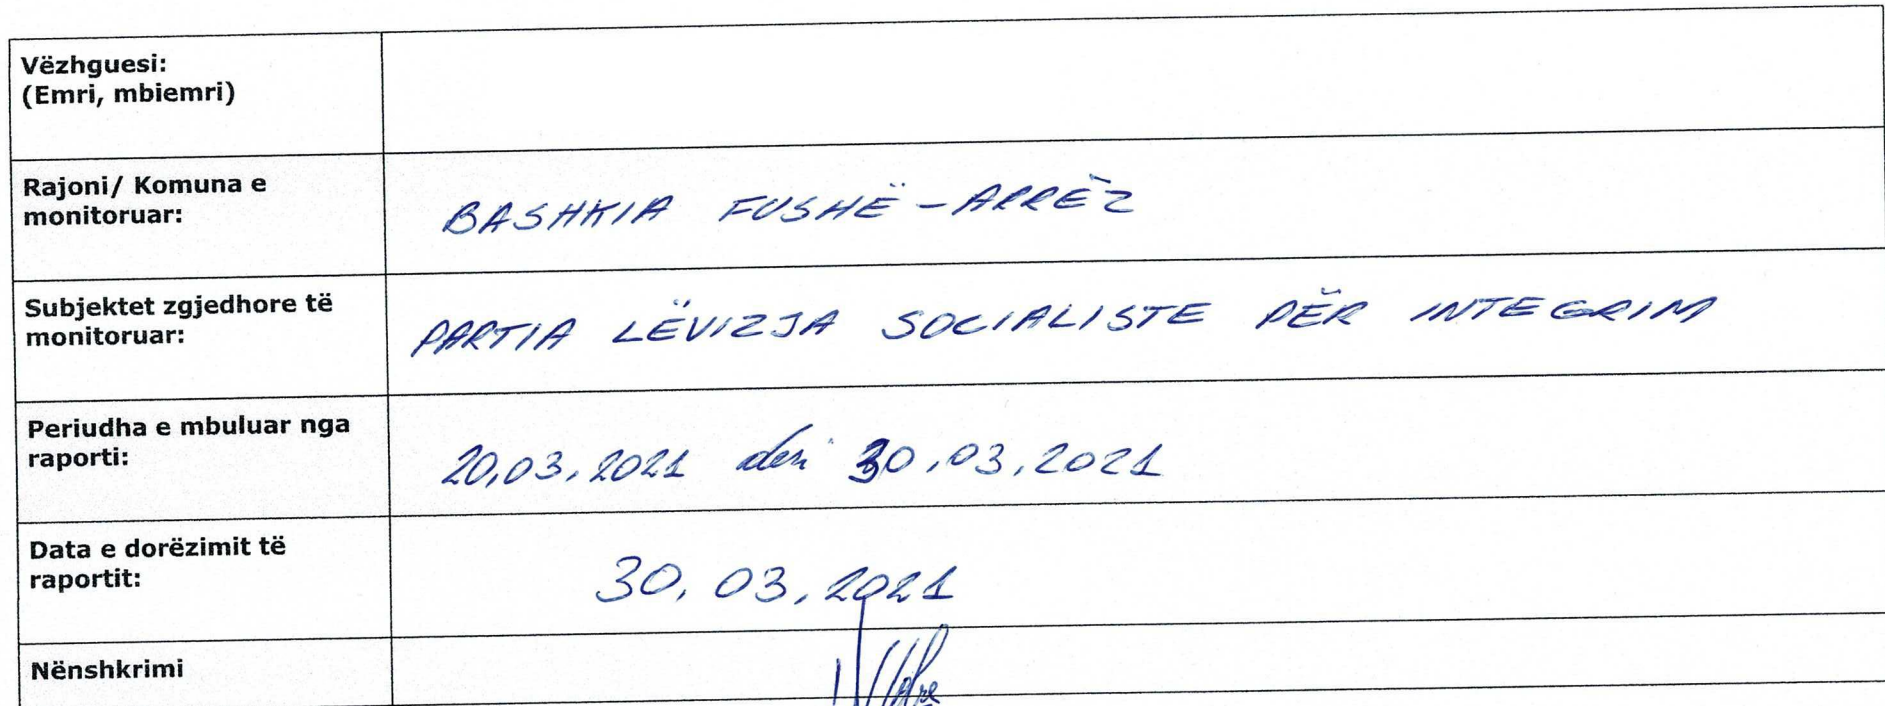 Vëzhguesi:
(Emri, mbiemri)
Rajoni/ Komuna e
monitoruar:
BASHKIA FUSHË - ARRËZ
Subjektet zgjedhore të
monitoruar:
PARTIA LËVIZJA SOCIALISTE PËR INTEGRIM
Periudha e mbuluar nga
raporti:
20.03.2021 deri 30.03.2021
Data e dorëzimit të
raportit:
30.03.2021
Nënshkrimi